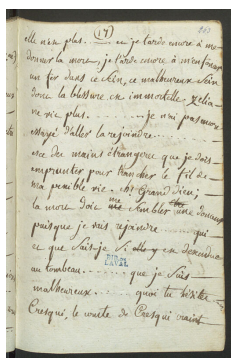 (17)
elle n'est plus.... et je tarde encore à me
donner la mort, je tarde encore à m'enfoncer
un fer dans ce sein, ce malheureux sein
dont la blessure est immortelle
ne vit plus....... je n'ai pas encore
essayé d'aller la rejoindre....
est ce des mains étrangeres que je dois
emprunter pour trancher le fil de
ma penible vie. Grand Dieu;
la mort doit me sembler une douceur
puisque je vais rejoindre.... qui
et que sais-je si elle y est descendue
au tombeau...... que je suis
malheureux..... quoi tu hésites
Cresqui, le comte de Cresqui craint